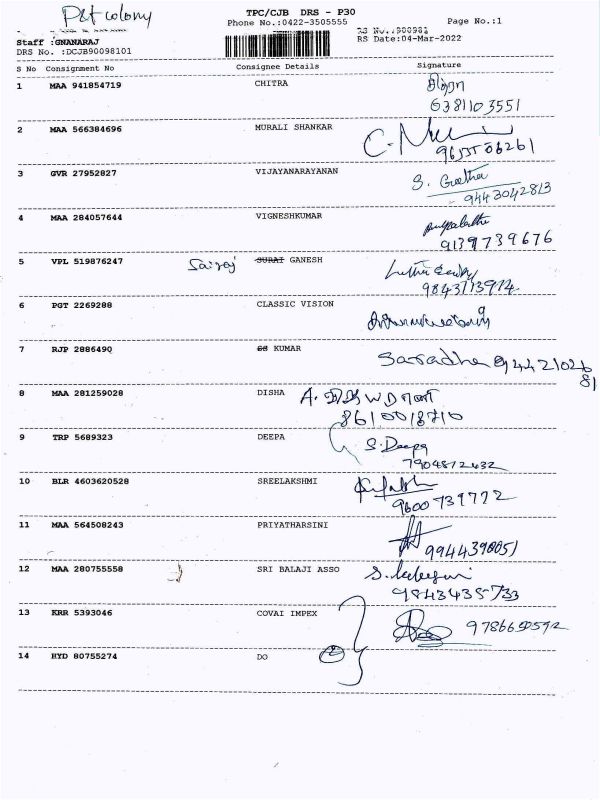 P&T colony
TPC/CJB DRS - P30
Phone No.:0422-3505555
Page No.:1
Staff :GNANARAJ
RS No.:900981
DRS No. :DCJB90098101
RS Date:04-Mar-2022
S No Consignment No Consignee Details Signature
1 MAA 941854719 CHITRA சித்ரா
6381103551
2 MAA 566384696 MURALI SHANKAR
3 GVR 27952827 VIJAYANARAYANAN S. Geetha
9443042813
4 MAA 284057644 VIGNESHKUMAR
9139739676
5 VPL 519876247 Sairaj SURAJ GANESH
9843113914
6 PGT 2269288 CLASSIC VISION
7 RJP 2886490 GS KUMAR Saradha 944221026
81
8 MAA 281259028 DISHA
8610018710
9 TRP 5689323 DEEPA S. Deepa
7904872432
10 BLR 4603620528 SREELAKSHMI
9600739772
11 MAA 564508243 PRIYATHARSINI
9944390051
12 MAA 280755558 SRI BALAJI ASSO
9843435733
13 KRR 5393046 COVAI IMPEX 9786650592
14 HYD 80755274 DO